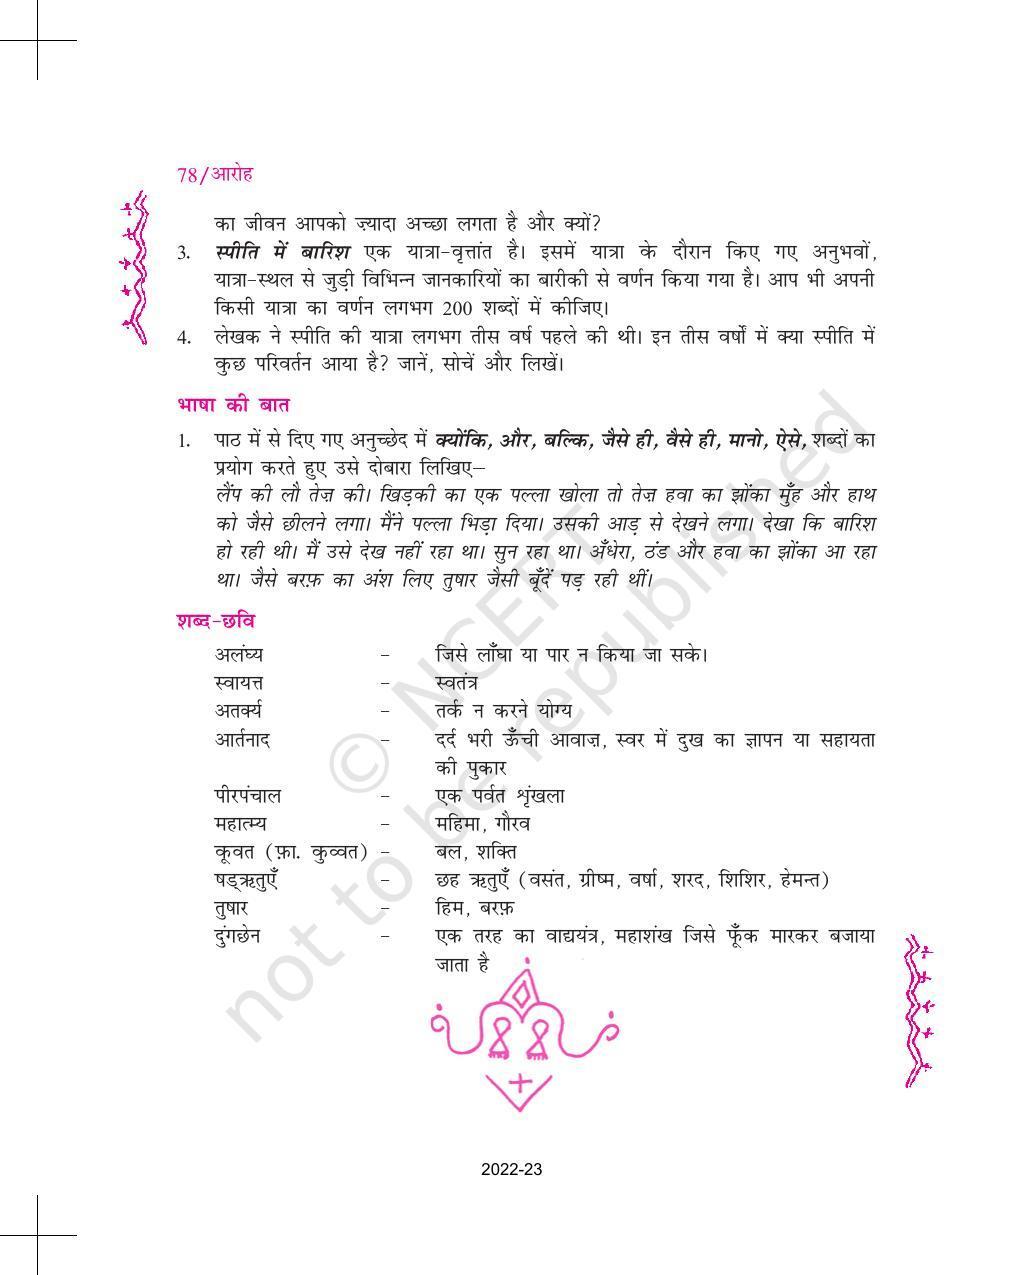 78/आरोह
का जीवन आपको ज़्यादा अच्छा लगता है और क्यों?
3. स्पीति में बारिश एक यात्रा-वृत्तांत है। इसमें यात्रा के दौरान किए गए अनुभवों,
यात्रा-स्थल से जुड़ी विभिन्न जानकारियों का बारीकी से वर्णन किया गया है। आप भी अपनी
किसी यात्रा का वर्णन लगभग 200 शब्दों में कीजिए।
4. लेखक ने स्पीति की यात्रा लगभग तीस वर्ष पहले की थी। इन तीस वर्षों में क्या स्पीति में
कुछ परिवर्तन आया है? जानें, सोचें और लिखें।
भाषा की बात
1. पाठ में से दिए गए अनुच्छेद में क्योंकि, और, बल्कि, जैसे ही, वैसे ही, मानो, ऐसे, शब्दों का
प्रयोग करते हुए उसे दोबारा लिखिए–
लैंप की लौ तेज़ की। खिड़की का एक पल्ला खोला तो तेज़ हवा का झोंका मुँह और हाथ
को जैसे छीलने लगा। मैंने पल्ला भिड़ा दिया। उसकी आड़ से देखने लगा। देखा कि बारिश
हो रही थी। मैं उसे देख नहीं रहा था। सुन रहा था। अँधेरा, ठंड और हवा का झोंका आ रहा
था। जैसे बरफ़ का अंश लिए तुषार जैसी बूँदें पड़ रही थीं।
शब्द-छवि
अलंघ्य - जिसे लाँघा या पार न किया जा सके।
स्वायत्त - स्वतंत्र
अतर्क्य - तर्क न करने योग्य
आर्तनाद - दर्द भरी ऊँची आवाज़, स्वर में दुख का ज्ञापन या सहायता
की पुकार
पीरपंचाल - एक पर्वत शृंखला
महात्म्य - महिमा, गौरव
कूवत (फ़ा. कुव्वत) - बल, शक्ति
षड्ऋतुएँ - छह ऋतुएँ (वसंत, ग्रीष्म, वर्षा, शरद, शिशिर, हेमन्त)
तुषार - हिम, बरफ़
दुंगछेन - एक तरह का वाद्ययंत्र, महाशंख जिसे फूँक मारकर बजाया
जाता है
© NCERT
not to be republished
2022-23